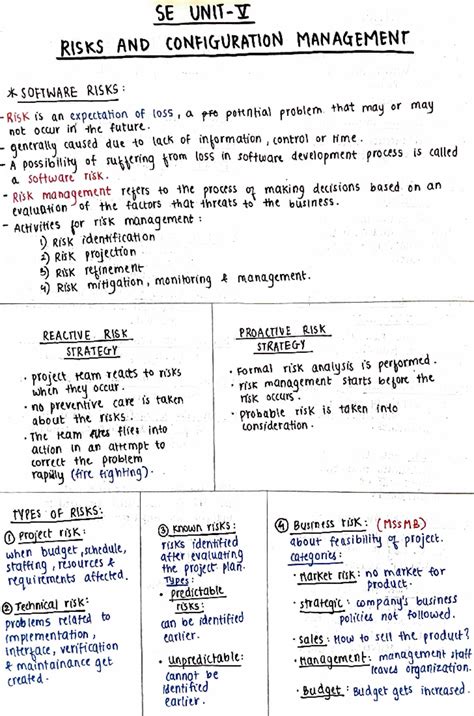 SE UNIT-V
RISKS AND CONFIGURATION MANAGEMENT
* SOFTWARE RISKS:
- Risk is an expectation of loss, a potential problem that may or may
not occur in the future.
- generally caused due to lack of information, control or time.
- A possibility of suffering from loss in software development process is called
a software risk.
- Risk management refers to the process of making decisions based on an
evaluation of the factors that threats to the business.
- Activities for risk management:
1) Risk identification
2) Risk projection
3) Risk refinement
4) Risk mitigation, monitoring & management.
REACTIVE RISK
STRATEGY
• project team reacts to risks
when they occur.
• no preventive care is taken
about the risks.
• The team flies into
action in an attempt to
correct the problem
rapidly (fire fighting).
PROACTIVE RISK
STRATEGY
• Formal risk analysis is performed.
• risk management starts before the
risk occurs.
• probable risk is taken into
consideration.
TYPES OF RISKS:
① Project risk:
when budget, schedule,
staffing, resources &
requirements affected.
② Technical risk:
problems related to
implementation,
interface, verification
& maintainance get
created.
③ Known risks:
risks identified
after evaluating
the project plan.
Types:
• predictable
risks:
can be identified
earlier.
• Unpredictable:
cannot be
identified
earlier.
④ Business risk: (MSSMB)
about feasibility of project.
categories:
• Market risk: no market for
product.
• strategic: company's business
policies not followed.
• sales: How to sell the product?
• Management: management staff
leaves organization.
• Budget: Budget gets increased.